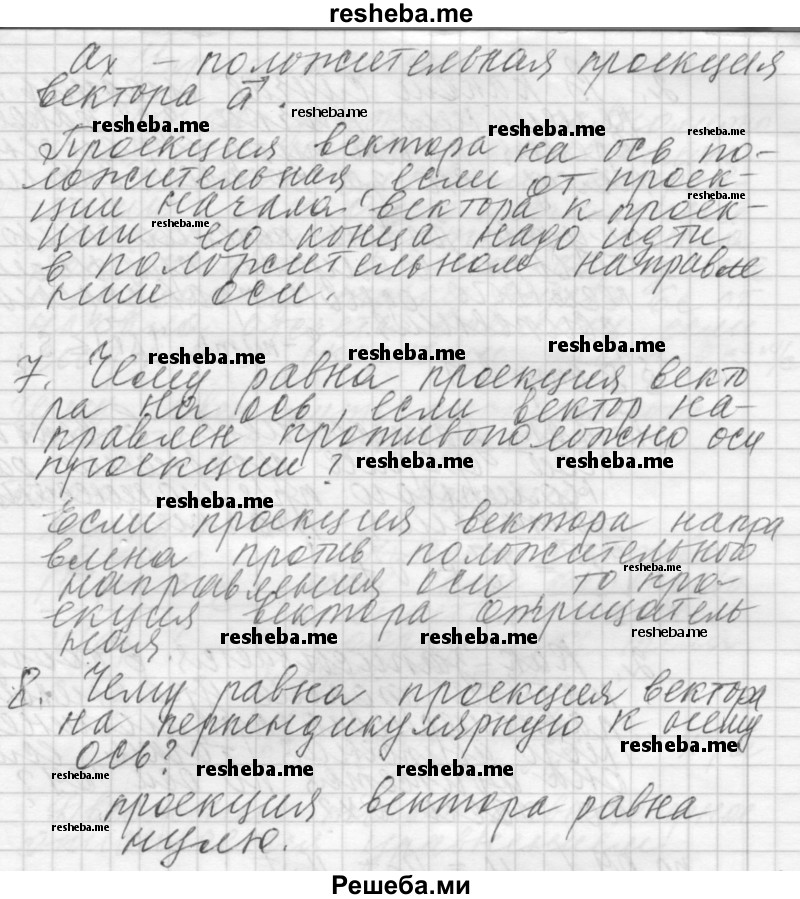 resheba.me
aₓ – положительная проекция
вектора a⃗.
resheba.me
resheba.me resheba.me resheba.me
Проекция вектора на ось по-
ложительная, если от проек-
resheba.me
ции начала вектора к проек-
resheba.me
ции его конца надо идти
в положительном направле
нии оси.
resheba.me resheba.me resheba.me
7. Чему равна проекция векто
ра на ось, если вектор на-
правлен противоположно оси
проекции?
resheba.me resheba.me
resheba.me
Если проекция вектора напра
влена против положительного
resheba.me
направления оси, то про-
екция вектора отрицатель
ная.
resheba.me resheba.me resheba.me
8. Чему равна проекция вектора
на перпендикулярную к нему
resheba.me
ось?
resheba.me resheba.me resheba.me
проекция вектора равна
resheba.me
нулю.
Решеба.ми